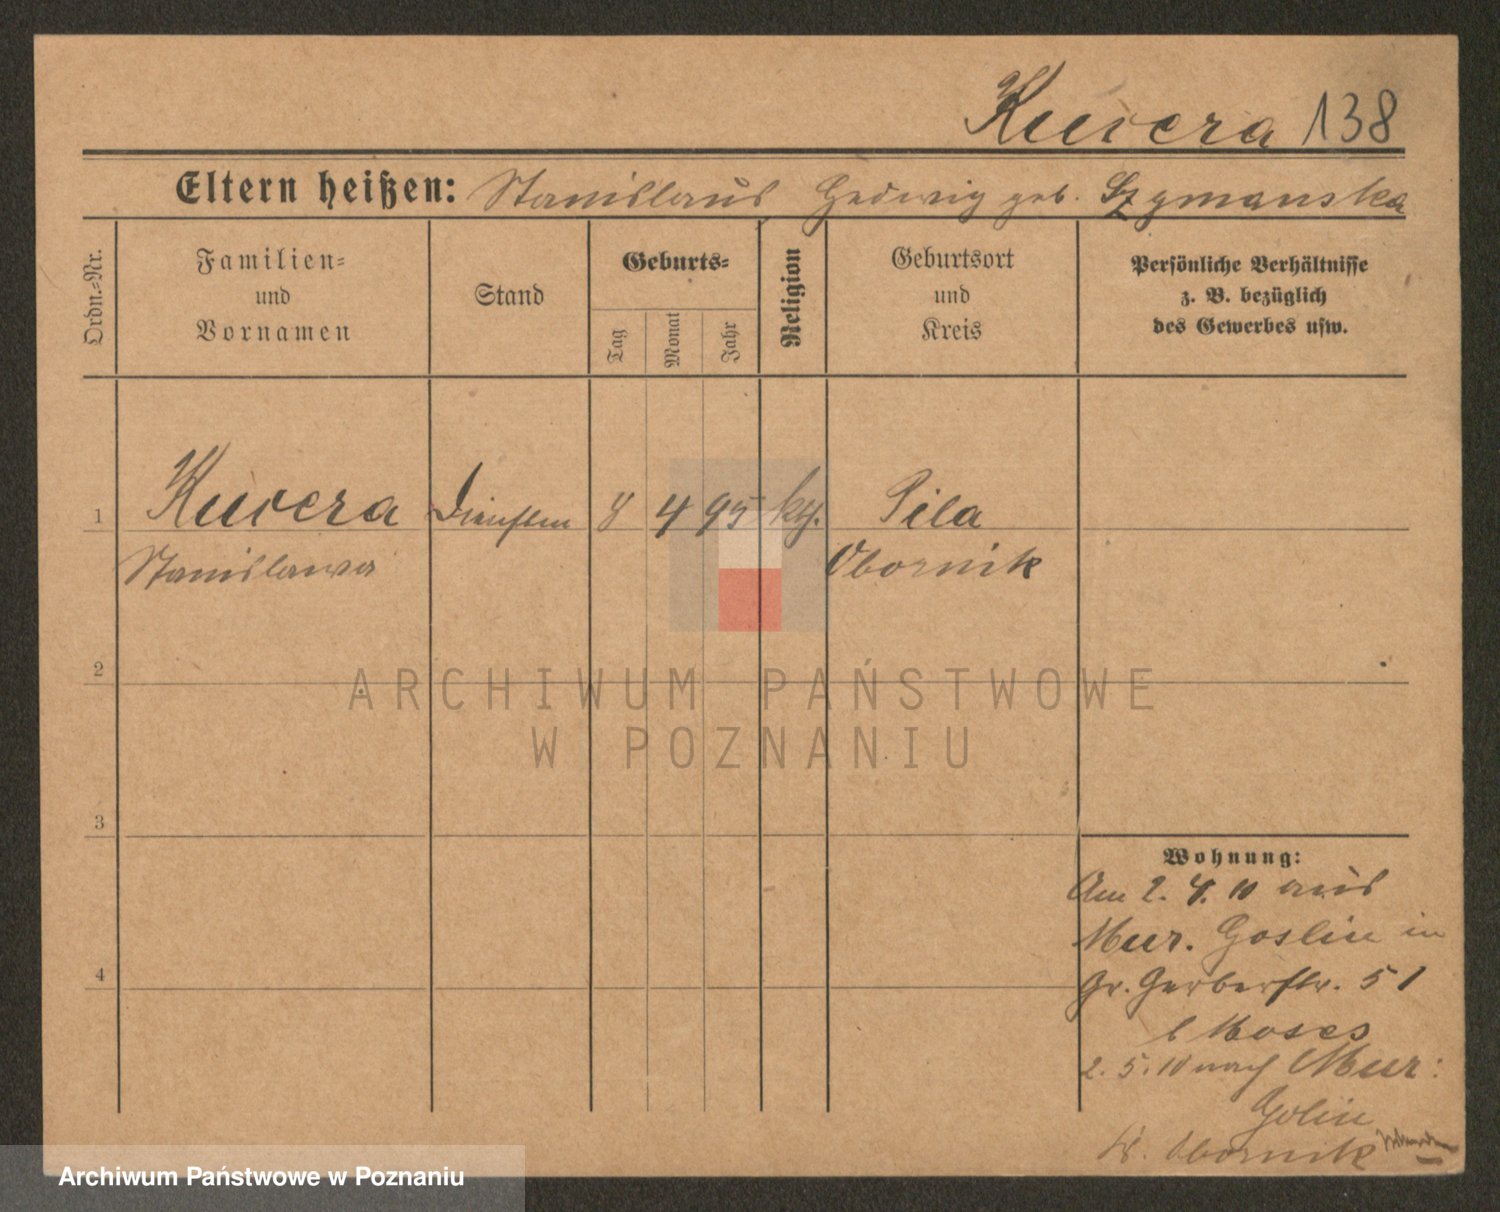 Kucera 138
Eltern heißen: Stanislaus Hedwig geb. Szymanska
Ordn.-Nr.
Familien-
und
Vornamen
Stand
Geburts-
Tag
Monat
Jahr
Religion
Geburtsort
und
Kreis
Persönliche Verhältnisse
z. B. bezüglich
des Gewerbes usw.
1 Kucera 8 4 95 Pila
Stanislawa Obornik
2
ARCHIWUM PAŃSTWOWE
W POZNANIU
3
Wohnung:
Am 2. 4. 10 aus
Mur. Goslin in
4
Gr. Gerberstr. 51
b Moses
2. 5. 10 nach Mur:
Golin
Kr. Obornik
Archiwum Państwowe w Poznaniu